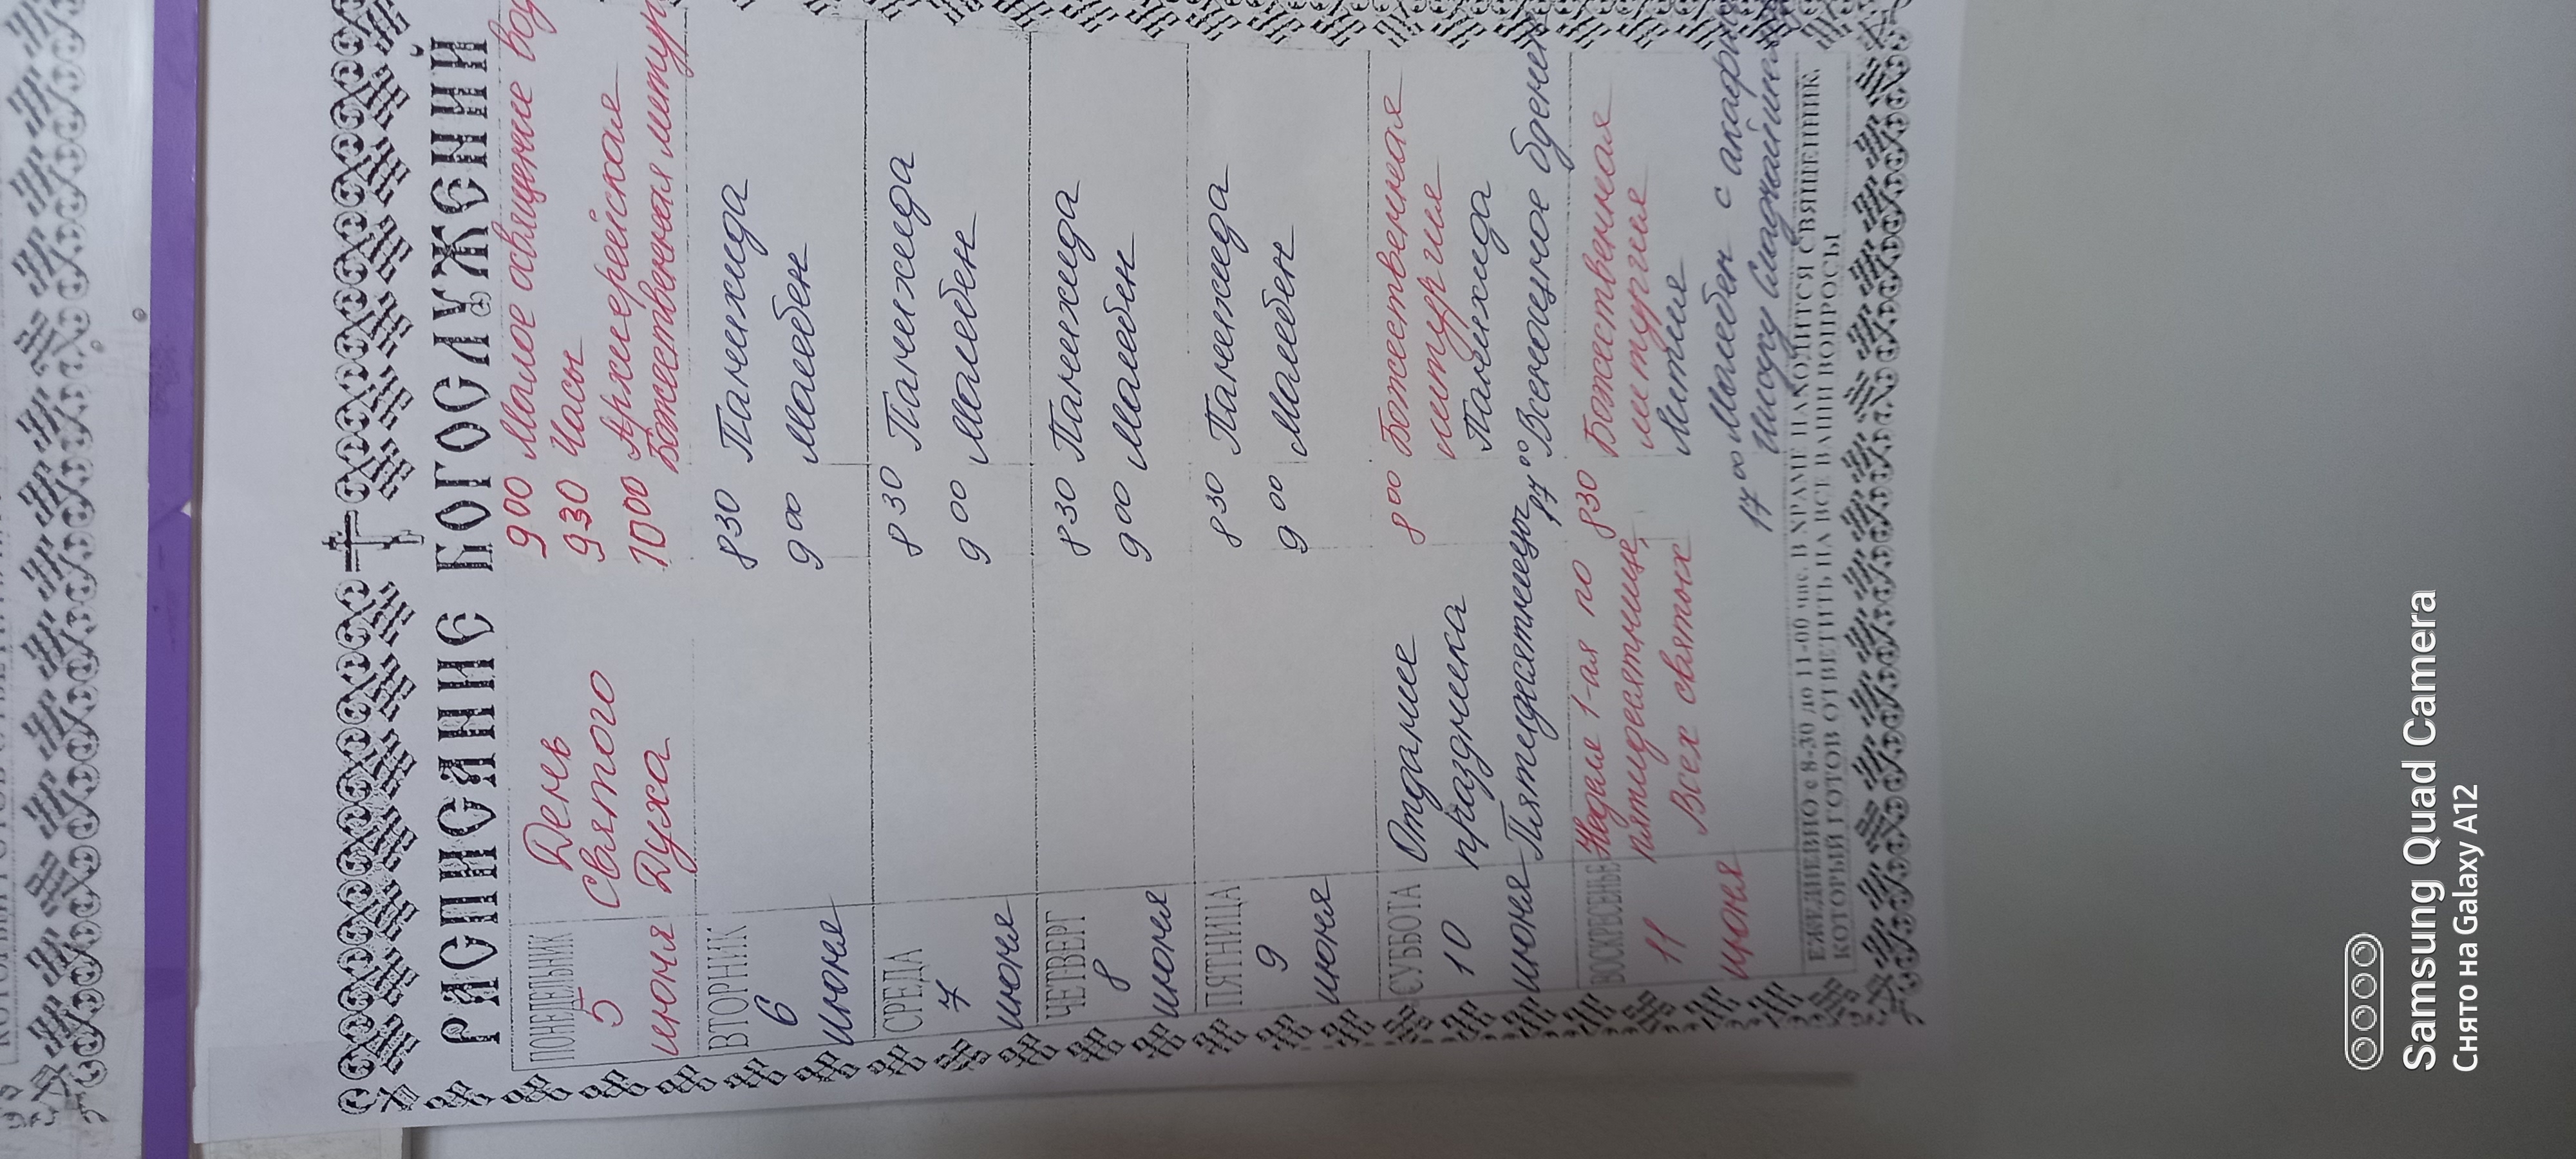 РАСПИСАНИЕ БОГОСЛУЖЕНИЙ
ПОНЕДЕЛЬНИК
5
июня
День
Святого
Духа
9 00 Малое освящение
9 30 Часы
10 00 Архиерейская
Божественная
ВТОРНИК
6
июня
8 30 Панихида
9 00 Молебен
СРЕДА
7
июня
8 30 Панихида
9 00 Молебен
ЧЕТВЕРГ
8
июня
8 30 Панихида
9 00 Молебен
ПЯТНИЦА
9
июня
8 30 Панихида
9 00 Молебен
СУББОТА
10
июня
Отдание
праздника
Пятидесятницы
8 00 Божественная
литургия
Панихида
17 00 Всенощное
ВОСКРЕСЕНЬЕ
11
июня
Неделя 1-ая по
пятидесятнице,
Всех святых
8 30 Божественная
литургия
Лития
17 00 Молебен с
ЕЖЕДНЕВНО с 8-30 до 11-00 час. В ХРАМЕ НАХОДИТСЯ СВЯЩЕННИК,
КОТОРЫЙ ГОТОВ ОТВЕТИТЬ НА ВСЕ ВАШИ ВОПРОСЫ
Samsung Quad Camera
Снято на Galaxy A12